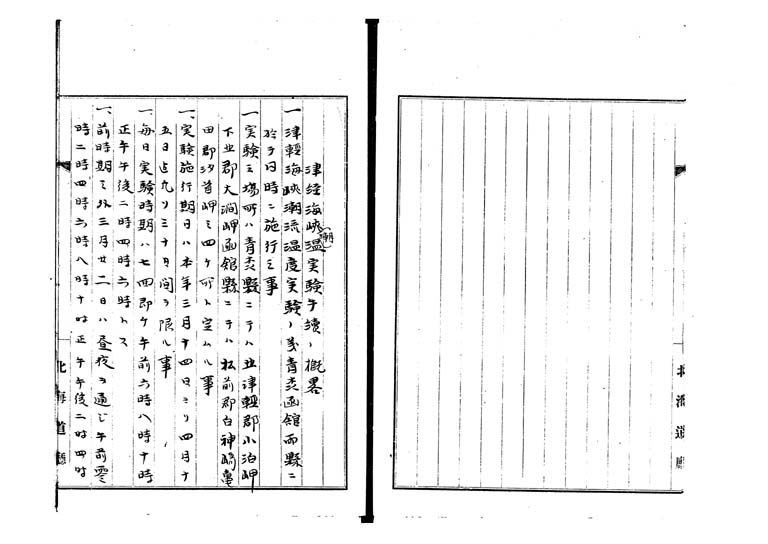 津経海峡温(潮)実験手續ノ概畧
一津輕海峡潮流温度実験ノ義青森函館両縣ニ
於テ同時ニ施行之事
一実験之場所ハ青森縣ニテハ北津輕郡小泊岬
下北郡大澗岬函館縣ニテハ松前郡白神﨑亀
田郡汐首岬之四ケ所ト定ムル事
一、実験施行期日ハ本年三月十四日ヨリ四月十
五日迠九ソ三十日間ヲ限ル事
一、毎日実験時期ハ七四即ケ午前六時八時十時
正午午後二時四時六時トス
一、前時期之外三月廿二日ハ昼夜ヲ通シ午前零
時二時四時六時八時十时正午午後二时四时
北海道廳
北海道廳